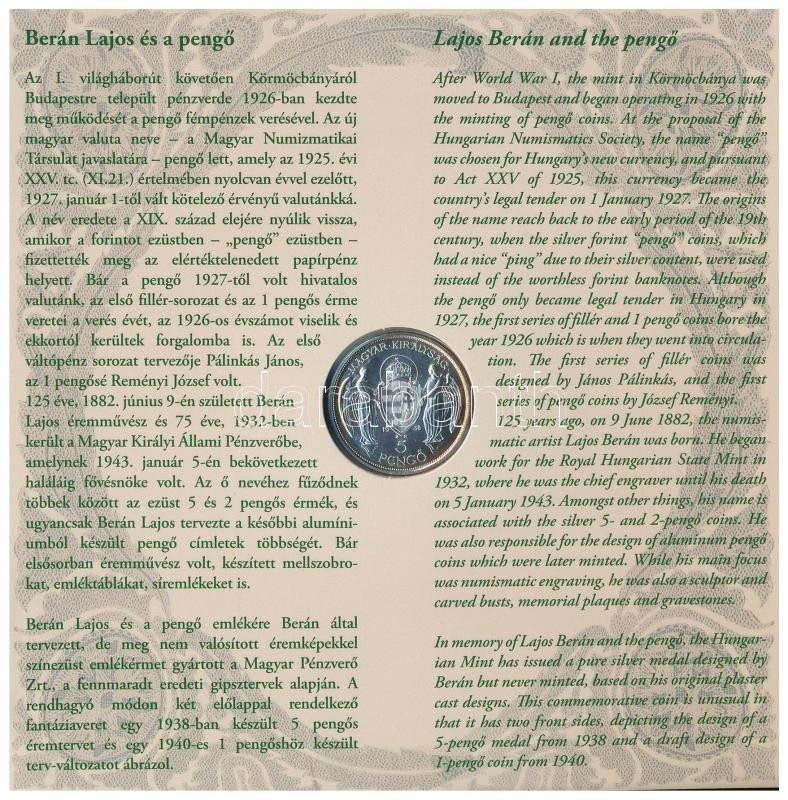 Berán Lajos és a pengő
Az I. világháborút követően Körmöcbányáról
Budapestre települt pénzverde 1926-ban kezdte
meg működését a pengő fémpénzek verésével. Az új
magyar valuta neve – a Magyar Numizmatikai
Társulat javaslatára – pengő lett, amely az 1925. évi
XXV. tc. (XI.21.) értelmében nyolcvan évvel ezelőtt,
1927. január 1-től vált kötelező érvényű valutánkká.
A név eredete a XIX. század elejére nyúlik vissza,
amikor a forintot ezüstben – „pengő” ezüstben –
fizettették meg az elértéktelenedett papírpénz
helyett. Bár a pengő 1927-től volt hivatalos
valutánk, az első fillér-sorozat és az 1 pengős érme
veretei a verés évét, az 1926-os évszámot viselik és
ekkortól kerültek forgalomba is. Az első
váltópénz sorozat tervezője Pálinkás János,
az 1 pengősé Reményi József volt.
125 éve, 1882. június 9-én született Berán
Lajos éremművész és 75 éve, 1932-ben
került a Magyar Királyi Állami Pénzverőbe,
amelynek 1943. január 5-én bekövetkezett
haláláig fővésnöke volt. Az ő nevéhez fűződnek
többek között az ezüst 5 és 2 pengős érmék, és
ugyancsak Berán Lajos tervezte a későbbi alumíni-
umból készült pengő címletek többségét. Bár
elsősorban éremművész volt, készített mellszobro-
kat, emléktáblákat, síremlékeket is.
Berán Lajos és a pengő emlékére Berán által
tervezett, de meg nem valósított éremképekkel
színezüst emlékérmet gyártott a Magyar Pénzverő
Zrt., a fennmaradt eredeti gipsztervek alapján. A
rendhagyó módon két előlappal rendelkező
fantáziaveret egy 1938-ban készült 5 pengős
éremtervet és egy 1940-es 1 pengőshöz készült
terv-változatot ábrázol.
MAGYAR·KIRÁLYSÁG
5
PENGŐ
darabanth
Lajos Berán and the pengő
After World War I, the mint in Körmöcbánya was
moved to Budapest and began operating in 1926 with
the minting of pengő coins. At the proposal of the
Hungarian Numismatics Society, the name “pengő”
was chosen for Hungary’s new currency, and pursuant
to Act XXV of 1925, this currency became the
country’s legal tender on 1 January 1927. The origins
of the name reach back to the early period of the 19th
century, when the silver forint “pengő” coins, which
had a nice “ping” due to their silver content, were used
instead of the worthless forint banknotes. Although
the pengő only became legal tender in Hungary in
1927, the first series of fillér and 1 pengő coins bore the
year 1926 which is when they went into circula-
tion. The first series of fillér coins was
designed by János Pálinkás, and the first
series of pengő coins by József Reményi.
125 years ago, on 9 June 1882, the numis-
matic artist Lajos Berán was born. He began
work for the Royal Hungarian State Mint in
1932, where he was the chief engraver until his death
on 5 January 1943. Amongst other things, his name is
associated with the silver 5- and 2-pengő coins. He
was also responsible for the design of aluminum pengő
coins which were later minted. While his main focus
was numismatic engraving, he was also a sculptor and
carved busts, memorial plaques and gravestones.
In memory of Lajos Berán and the pengő, the Hungar-
ian Mint has issued a pure silver medal designed by
Berán but never minted, based on his original plaster
cast designs. This commemorative coin is unusual in
that it has two front sides, depicting the design of a
5-pengő medal from 1938 and a draft design of a
1-pengő coin from 1940.